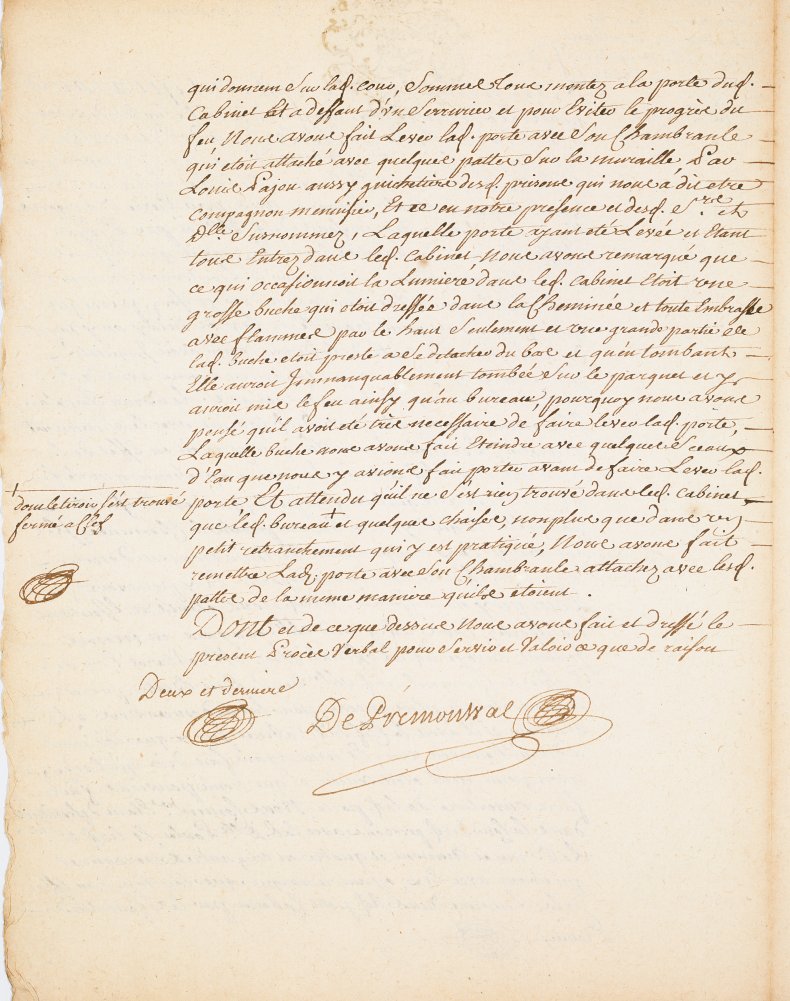 qui donnent sur lad. cour, sommes tous montez a la porte dud.
Cabinet Et a deffaut d'un Serrurier et pour Eviter le progrès du
feu, Nous avons fait Lever lad. porte avec son Chambranle
qui étoit attaché avec quelques pattes sur la muraille Par
Louis Pajou aussy guichetier desd. prisons qui nous à dit etre
compagnon menuisier, Et ce en notre presence et desd. Srs. et
Dlle. Surnommez, Laquelle porte ayant été Levée et Etant
tous Entrez dans led. Cabinet Nous avons remarqué que
ce qui occasionnoit la Lumiere dans led. Cabinet Etoit une
grosse buche qui etoit dressée dans la Cheminée et toute Embrasée
avec flammes par le haut Seulement et une grande partie de
lad. buche etoit preste a se detacher du bas et qu'en tombant
Elle auroit Immanquablement tombée Sur le parquet et y
auroit mis le feu ainsy qu'au bureau, pourquoy nous avons
pensé qu'il avoit été tres necessaire de faire lever lad. porte,
Laquelle buche nous avons fait Eteindre avec quelques Sceaux
d'Eau que nous y avions fait porter avant de faire Lever lad.
porte Et attendu qu'il ne s'est rien trouvé dans led. Cabinet
que led. bureau + et quelques chaises, non plus que dans un
petit retranchement qui y est pratiqué, Nous avons fait
remettre Lad. porte avec son Chambranle attachez avec lesd.
pattes de la meme maniere qu'ils etoient.
+ dont le tiroir s'est trouvé
fermé a Clef
Dont et de ce que dessus Nous avons fait et dressé le
present Procès Verbal pour Servir et Valoir ce que de raison
Deux et derniere
De Prémontval